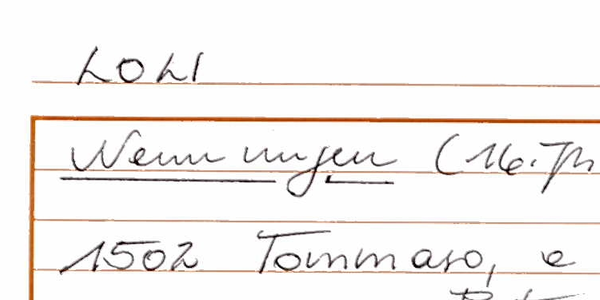 LOLI
Nennungen (16. Jh
1502 Tommaso, e